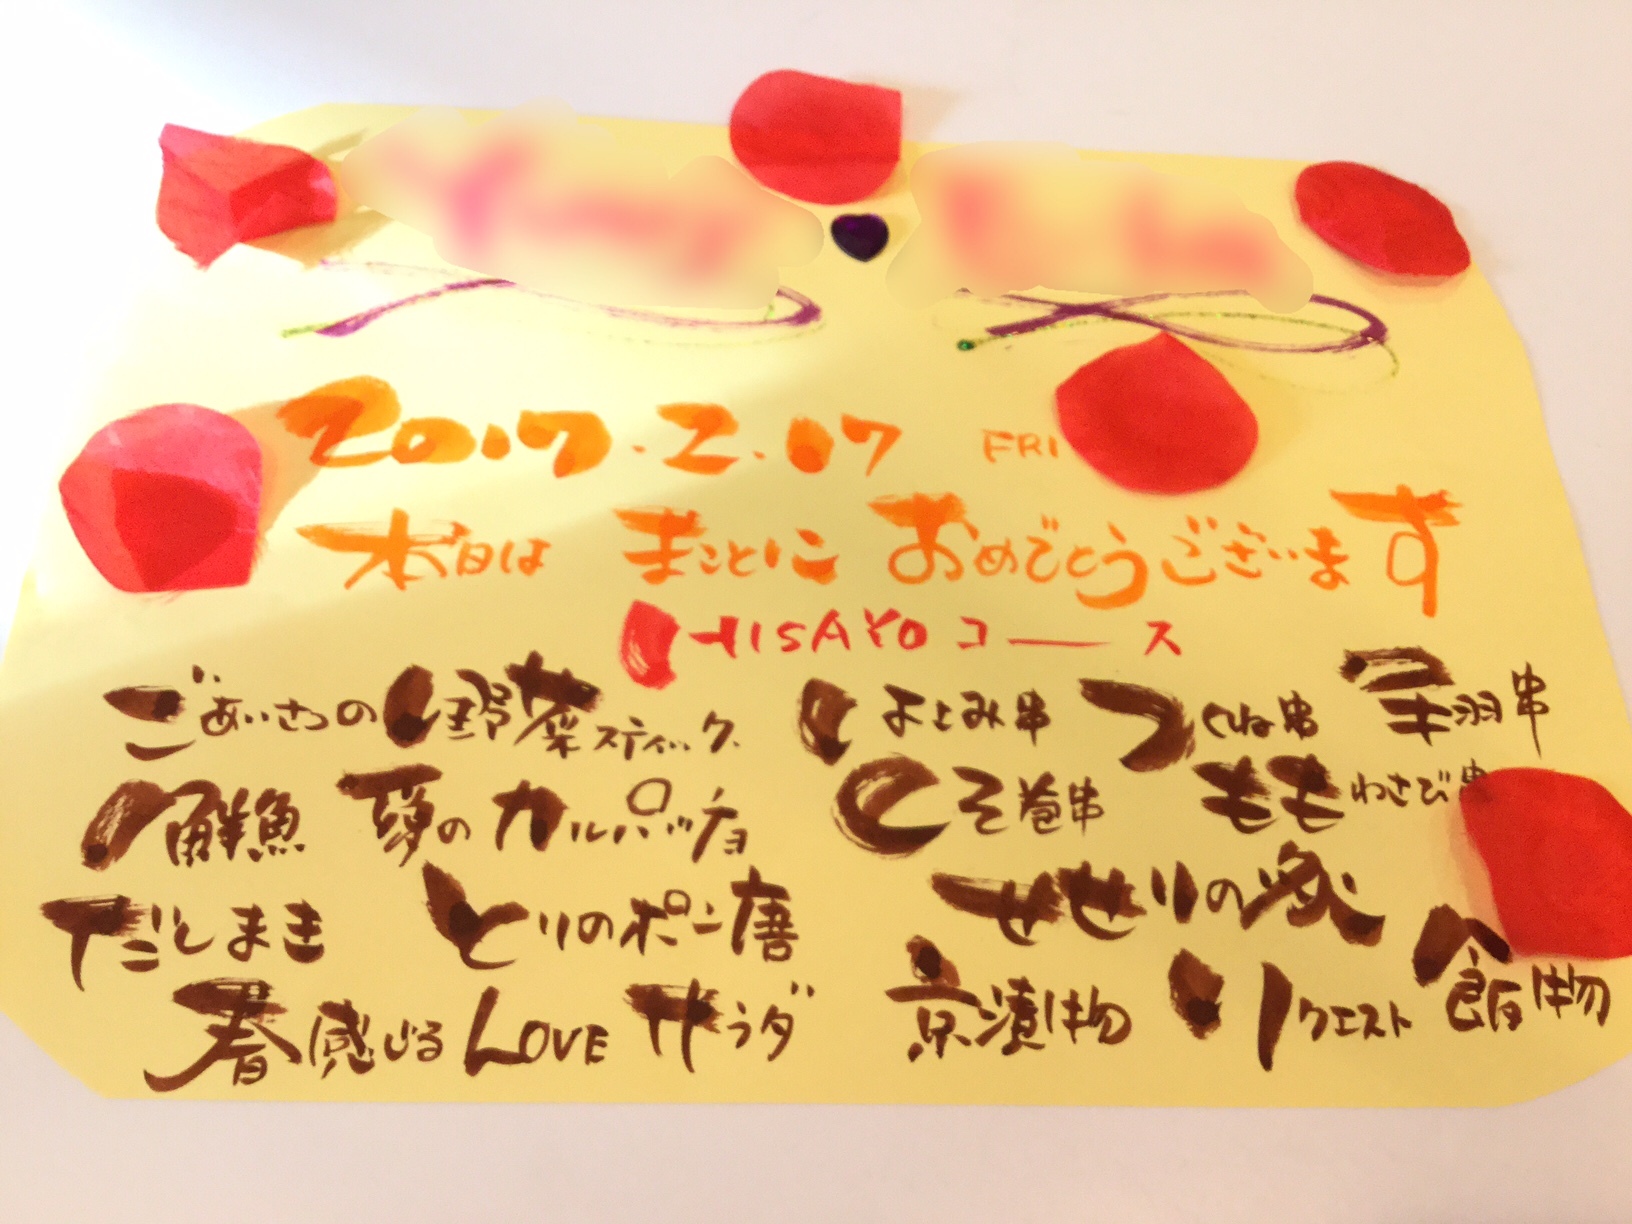 2017.2.17 FRI
本日は まことに おめでとうございます
HISAYOコース
ごあいさつの野菜スティック
鮮魚 夢の カルパッチョ
だしまき とりのポン唐
春感じる LOVE サラダ
はさみ串 つくね串 手羽串
しそ巻串 ももわさび串
せせりの
京漬物 リクエスト 飯物